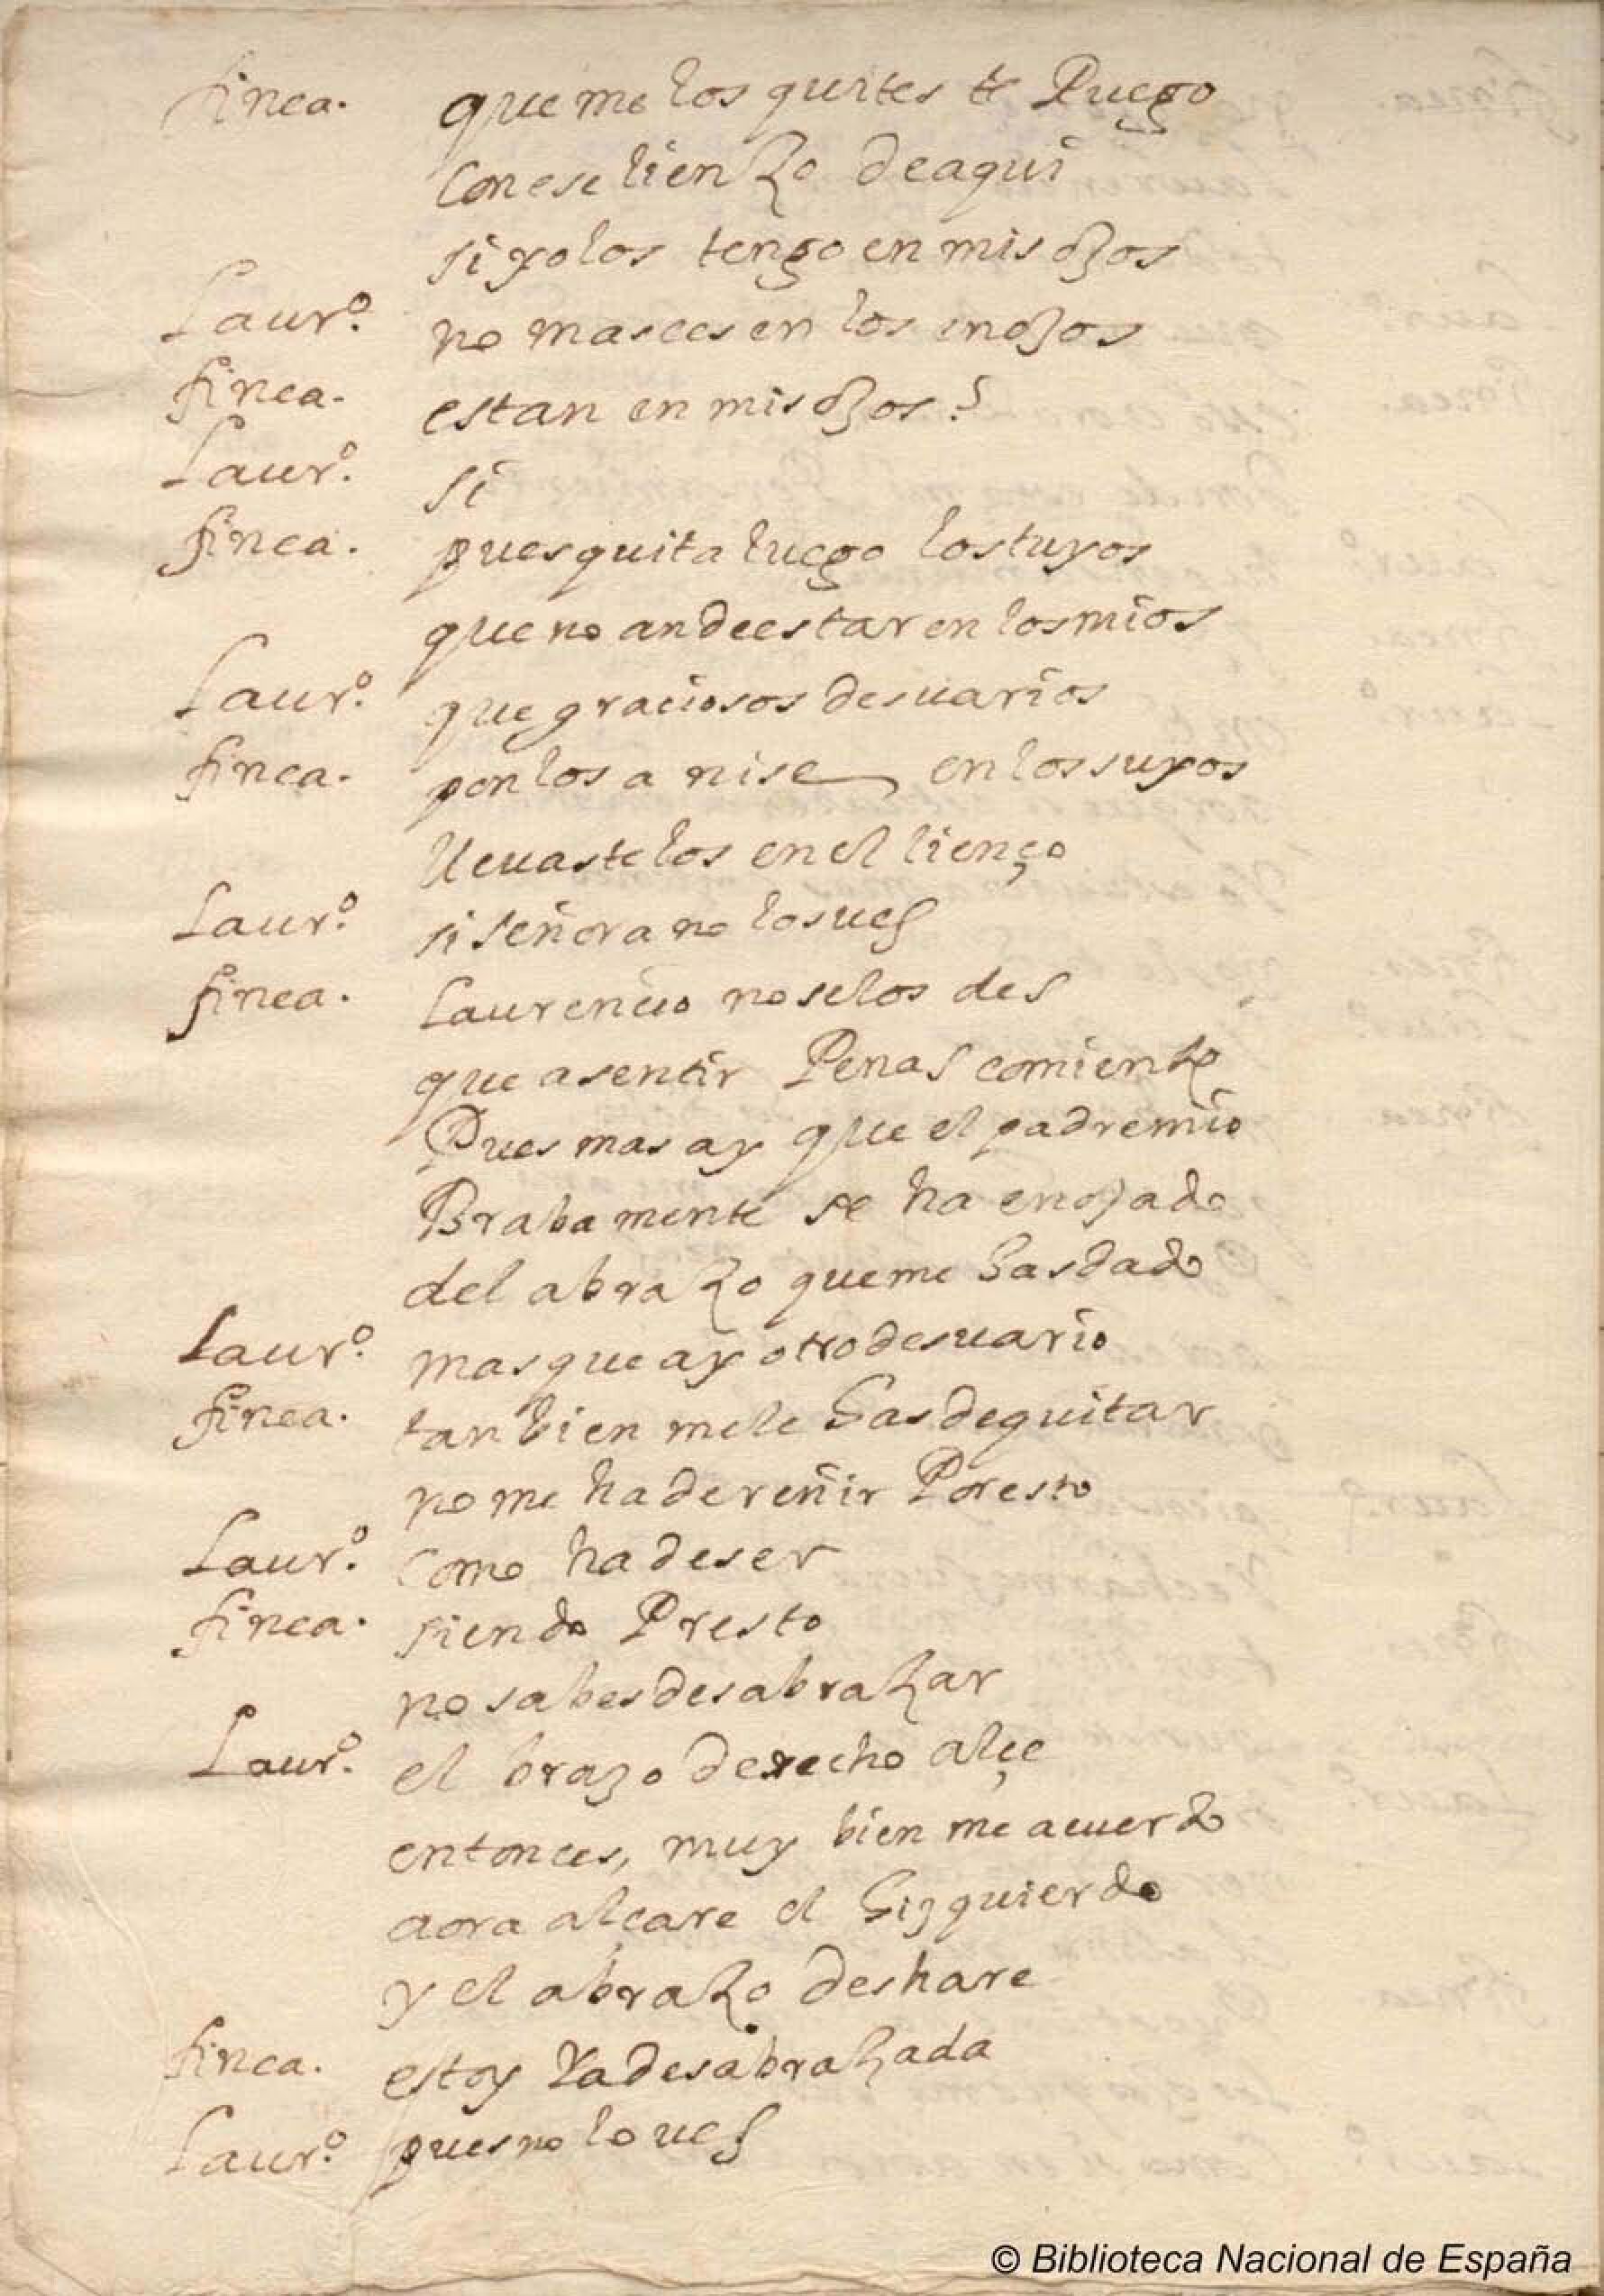 finea. que me los quites te Ruego
con ese lienzo de aqui
si yo los tengo en mis ojos
Laurº. no mas ces en los enojos
finea. estan en mis ojos?
Laurº. si
finea. pues quita luego los tuyos
que no an de estar en los mios
Laurº. que graciosos desuarios
finea. ponlos a nise en los suyos
lleuastelos en el lienço
Laurº. si señora no los ues
finea. Laurencio no se los des
que a sentir Penas comienzo
Pues mas ay que el padre mio
Brabamente se ha enojado
del abrazo que me has dado
Laurº. mas que ay otro desuario
finea. tanbien me le has de quitar
no me ha de reñir Por esto
Laurº. como ha de ser
finea. siendo Presto
no sabes desabrazar
Laurº. el brazo derecho alçe
entonces, muy bien me acuerdo
aora alçare el hizquierdo
y el abrazo deshare
finea. estoy Ya desabrazada
Laurº. pues no lo ues
© Biblioteca Nacional de España